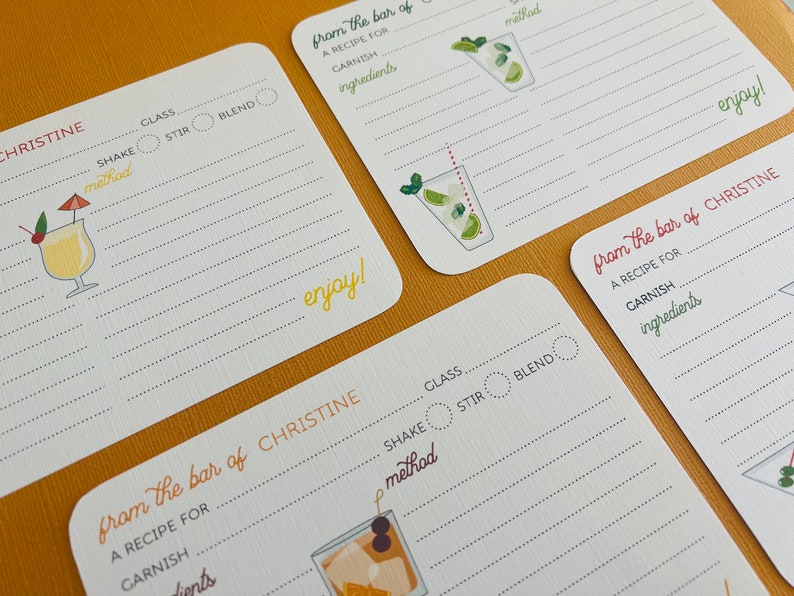 CHRISTINE
GLASS
SHAKE STIR BLEND
method
enjoy!
from the bar of
A RECIPE FOR
GARNISH
method
ingredients
enjoy!
from the bar of CHRISTINE
A RECIPE FOR
GLASS
GARNISH
SHAKE STIR BLEND
method
from the bar of CHRISTINE
A RECIPE FOR
GARNISH
ingredients